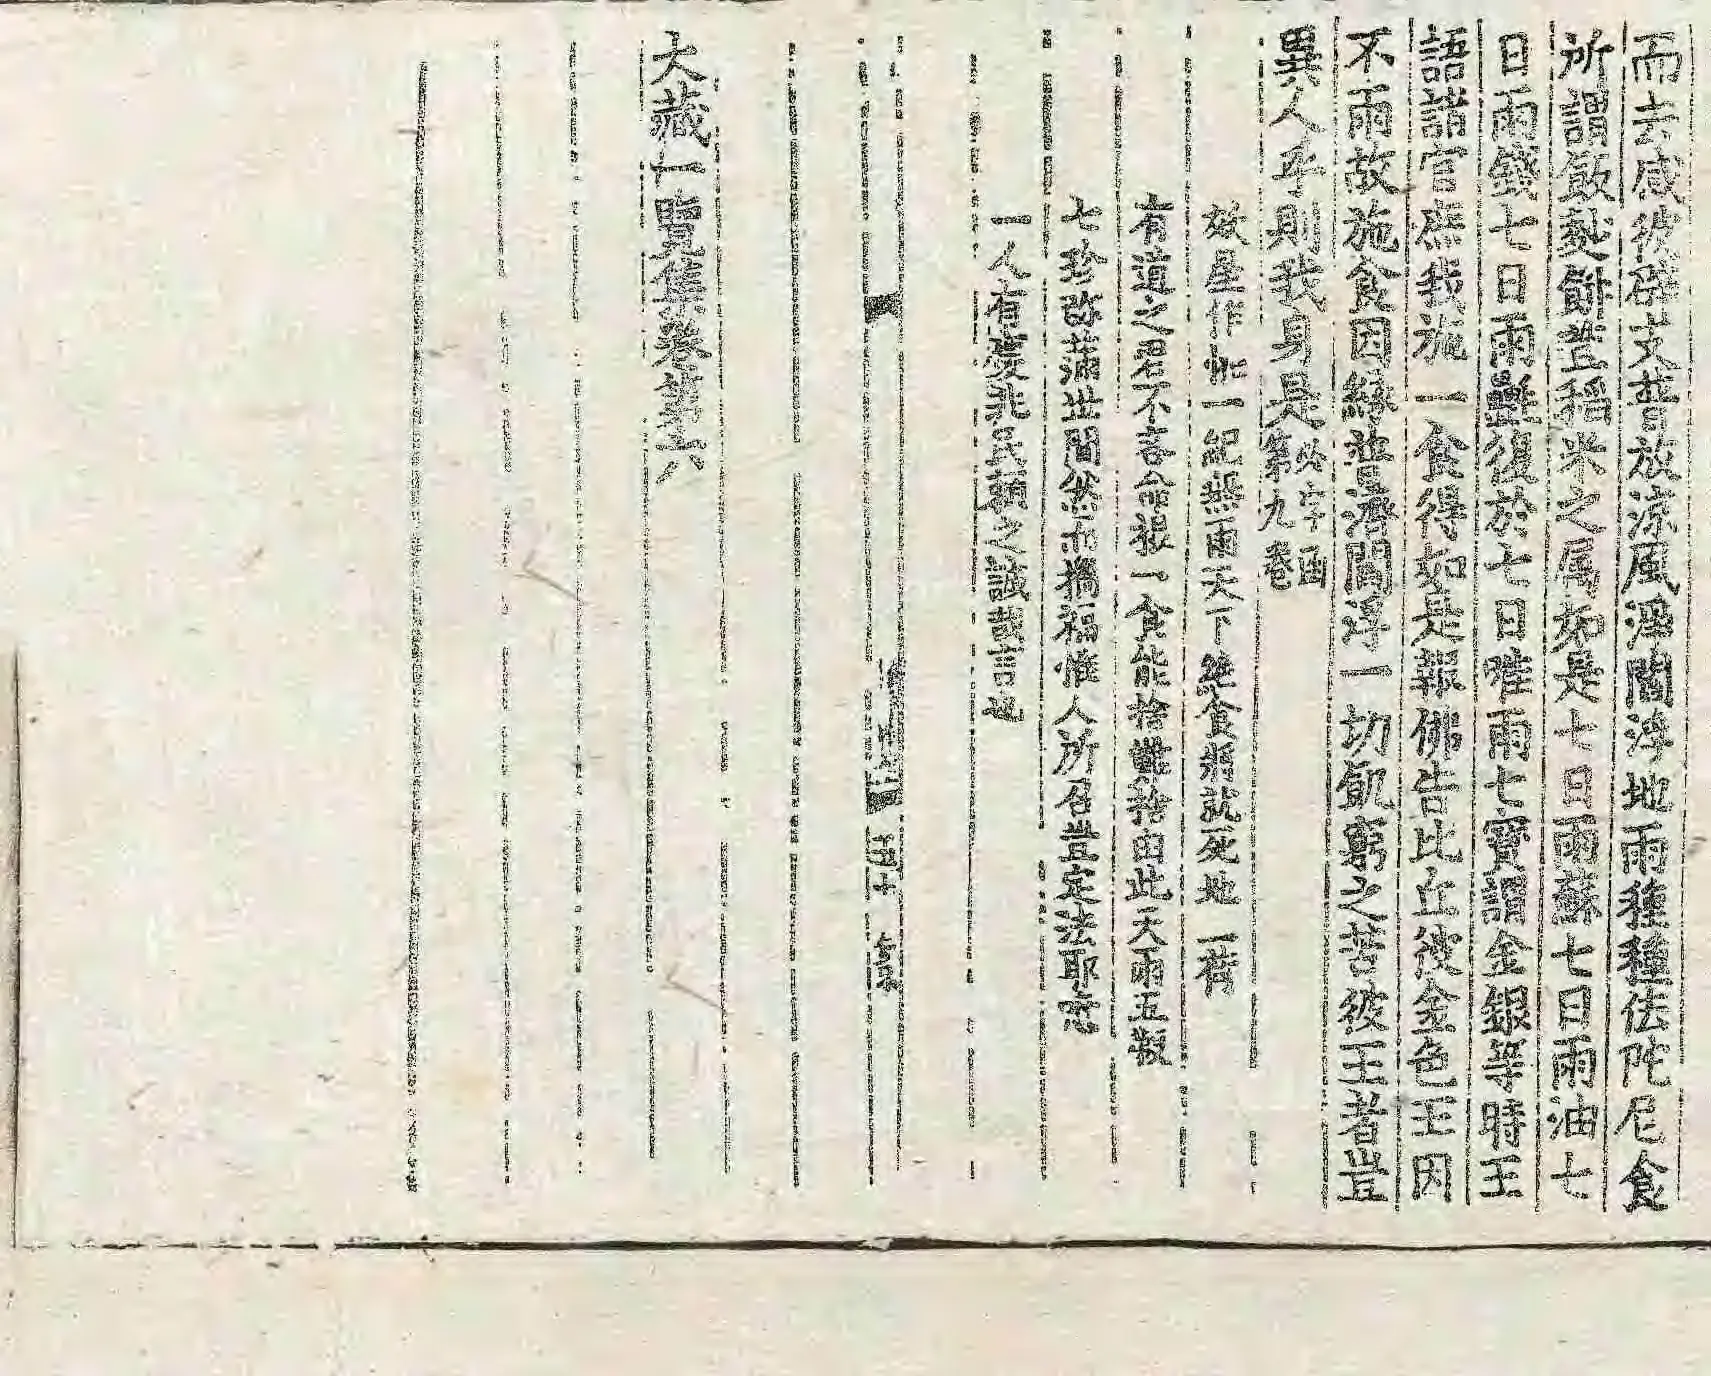 而去咸彼辟支普放涼風淫閻浮地雨種種佉陀尼食
所謂飯麨餅豊稻米之属如是七日雨蘇七日雨油七
日雨錢七日雨㲲復於七日唯雨七寶謂金銀等時王
語諸官庶我施一食得如是報佛告比丘彼金色王因
不雨故施食因緣普濟閻浮一切飢窮之苦彼王者豈
異人乎則我身是必字函第九卷
妖星作恠一紀無雨天下絶食將就死地一
有道之君不吝命根一食能捨難捨由此天雨五穀
七珍弥滿世間然而禍福惟人所召豈定法耶
一人有慶兆民頼之誠哉言也
大藏一覽集卷第六